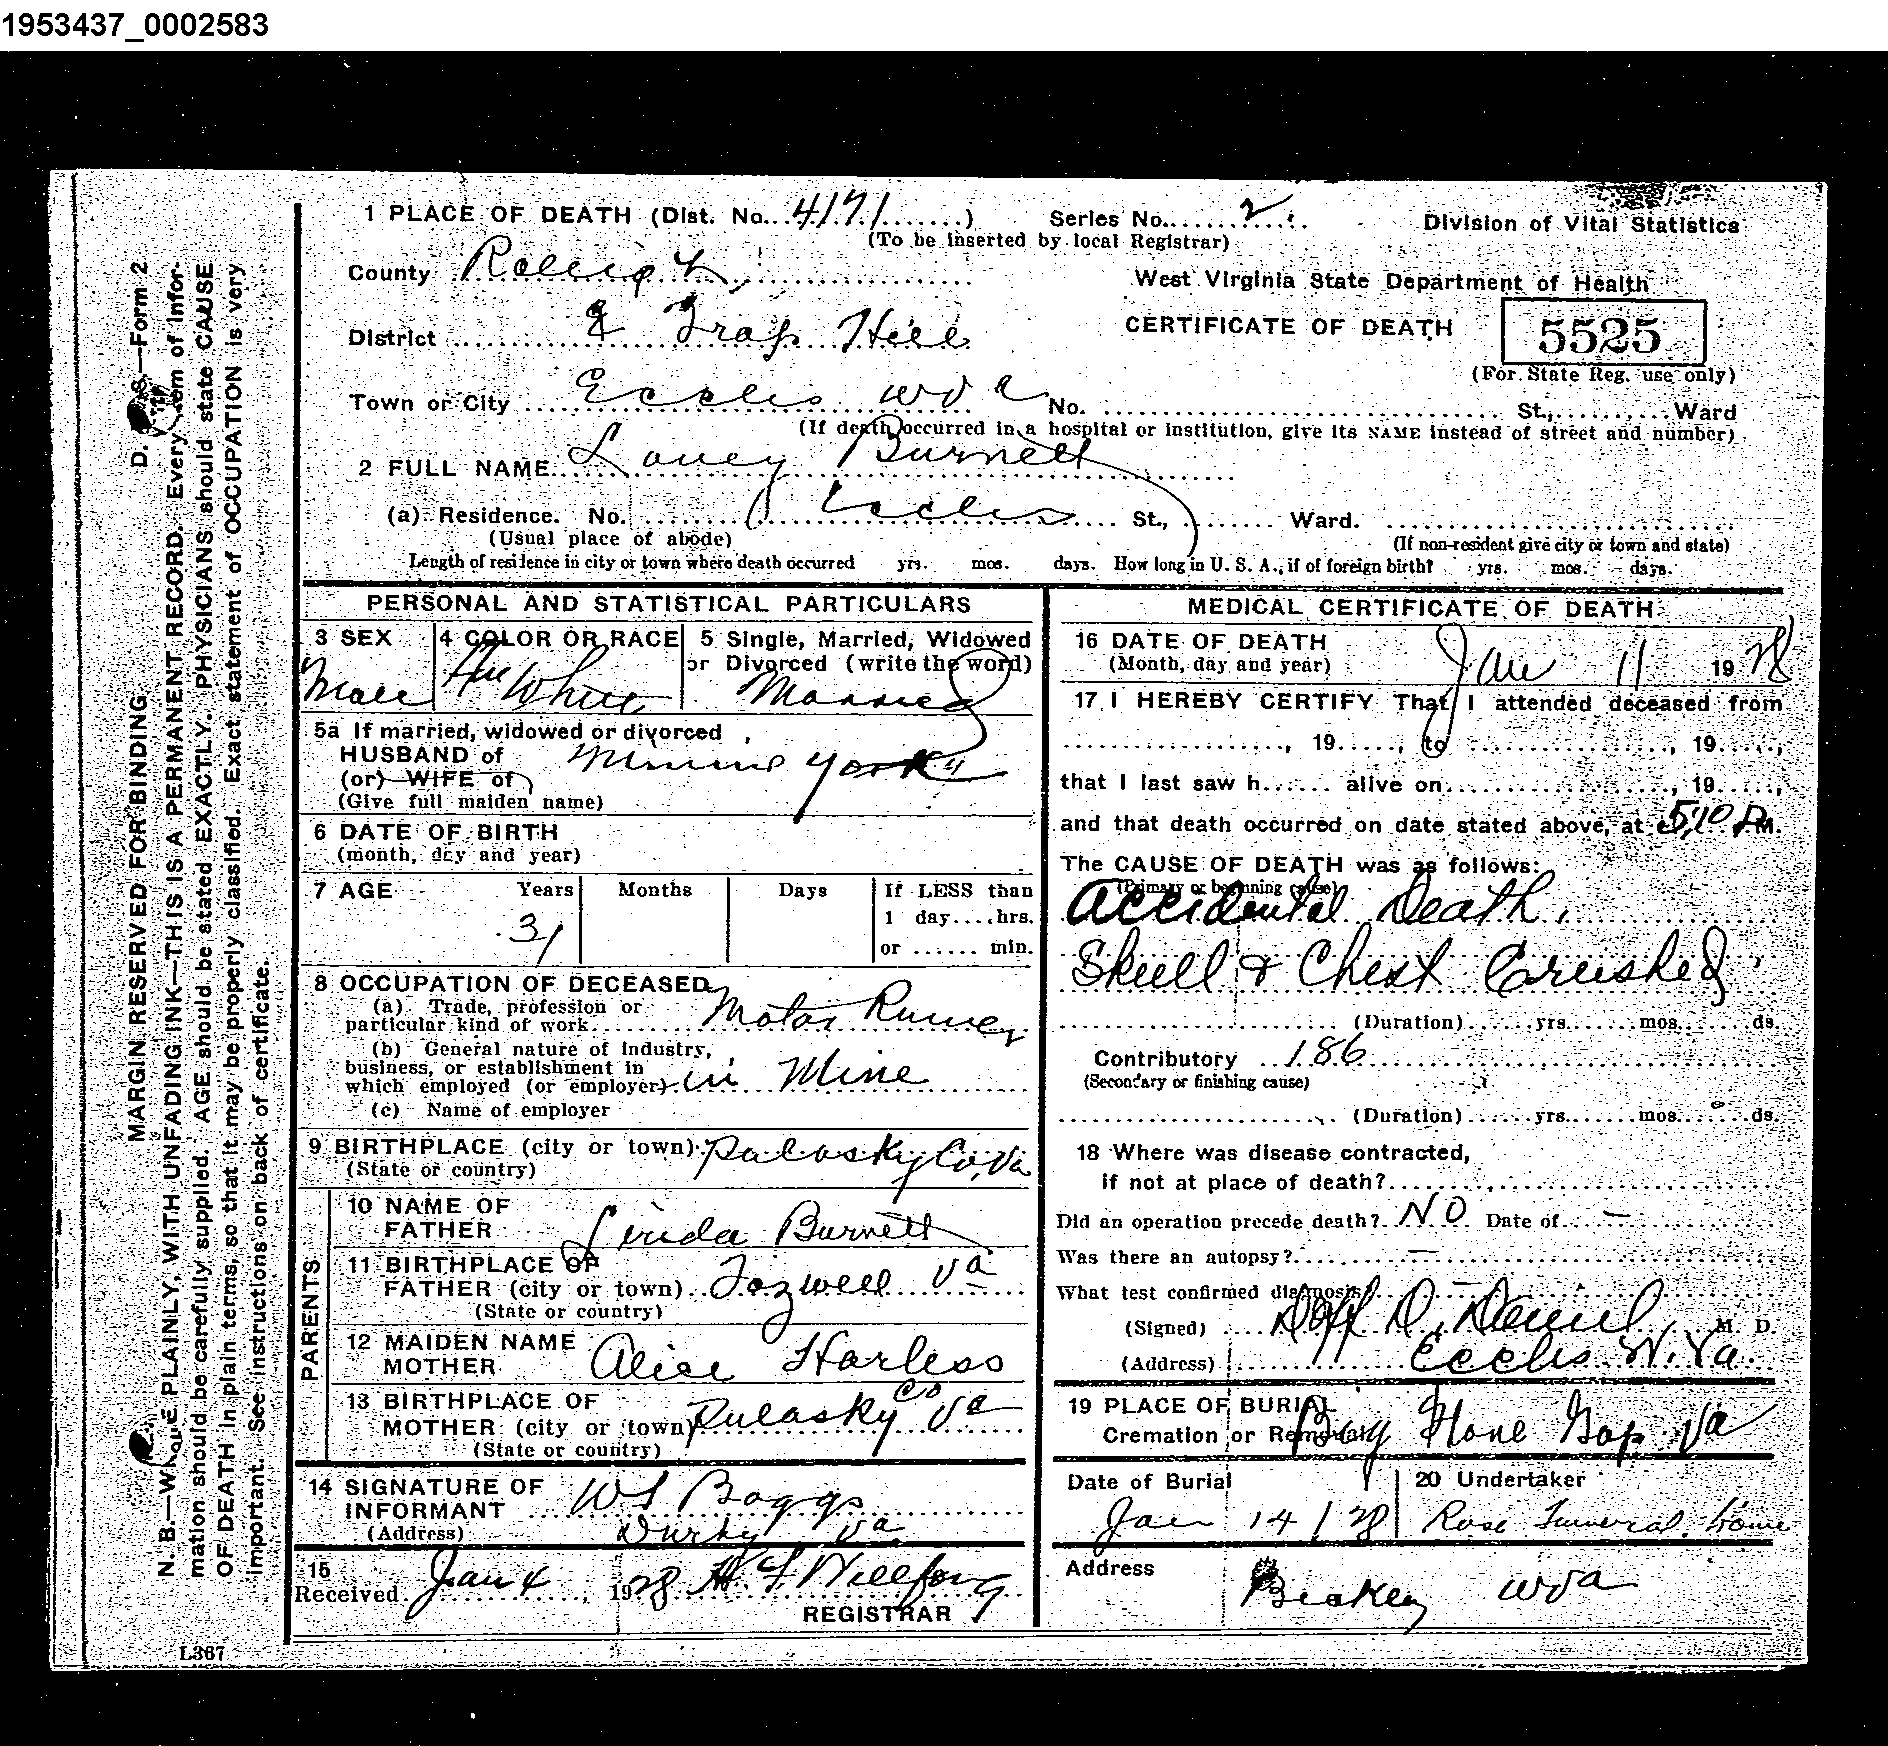 1953437_0002583
1 PLACE OF DEATH (Dist. No. 4171) Series No. 2 Division of Vital Statistics
(To be inserted by local Registrar)
County Raleigh West Virginia State Department of Health
District Trap Hill CERTIFICATE OF DEATH 5525
(For State Reg. use only)
Town or City Eccles W Va No. St., Ward
(If death occurred in a hospital or institution, give its NAME instead of street and number)
2 FULL NAME Burnett
(a) Residence. No. Eccles St., Ward.
(Usual place of abode) (If non-resident give city or town and state)
Length of residence in city or town where death occurred yrs. mos. days. How long in U. S. A., if of foreign birth? yrs. mos. days.
PERSONAL AND STATISTICAL PARTICULARS
3 SEX 4 COLOR OR RACE 5 Single, Married, Widowed
or Divorced (write the word)
Male White Married
5a If married, widowed or divorced
HUSBAND of Minnie York
(or) WIFE of
(Give full maiden name)
6 DATE OF BIRTH
(month, day and year)
7 AGE Years Months Days If LESS than
1 day....hrs.
31
or ...... min.
8 OCCUPATION OF DECEASED
(a) Trade, profession or
particular kind of work Motor Runner
(b) General nature of industry,
business, or establishment in
which employed (or employer) in Mine
(c) Name of employer
9 BIRTHPLACE (city or town) Pulasky Co, Va
(State or country)
PARENTS
10 NAME OF
FATHER Burnett
11 BIRTHPLACE OF
FATHER (city or town) Tazwell Va
(State or country)
12 MAIDEN NAME
MOTHER Alice Harless
13 BIRTHPLACE OF
MOTHER (city or town) Pulasky Co Va
(State or country)
14 SIGNATURE OF
INFORMANT W S Boggs
(Address) Va
15
Received Jan 1928
REGISTRAR
MEDICAL CERTIFICATE OF DEATH
16 DATE OF DEATH
(Month, day and year) Jan 11 1928
17 I HEREBY CERTIFY That I attended deceased from
, 19....., to , 19.....,
that I last saw h...... alive on , 19.....,
and that death occurred on date stated above, at 5:10 P.M.
The CAUSE OF DEATH was as follows:
(Primary or beginning cause)
Accidental Death.
Skull & Chest Crushed
(Duration) yrs. mos. ds.
Contributory 186
(Secondary or finishing cause)
(Duration) yrs. mos. ds.
18 Where was disease contracted,
if not at place of death?
Did an operation precede death? NO Date of —
Was there an autopsy? —
What test confirmed diagnosis? —
(Signed) D. Daniel M. D.
(Address) Eccles W. Va.
19 PLACE OF BURIAL
Cremation or Removal Big Stone Gap Va
Date of Burial 20 Undertaker
Jan 14 / 28 Rose Funeral home
Address
W Va
MARGIN RESERVED FOR BINDING D. V. S.—Form 2
N. B.—Write PLAINLY, WITH UNFADING INK—THIS IS A PERMANENT RECORD. Every item of infor-
mation should be carefully supplied. AGE should be stated EXACTLY. PHYSICIANS should state CAUSE
OF DEATH in plain terms, so that it may be properly classified. Exact statement of OCCUPATION is very
important. See instructions on back of certificate.
L367